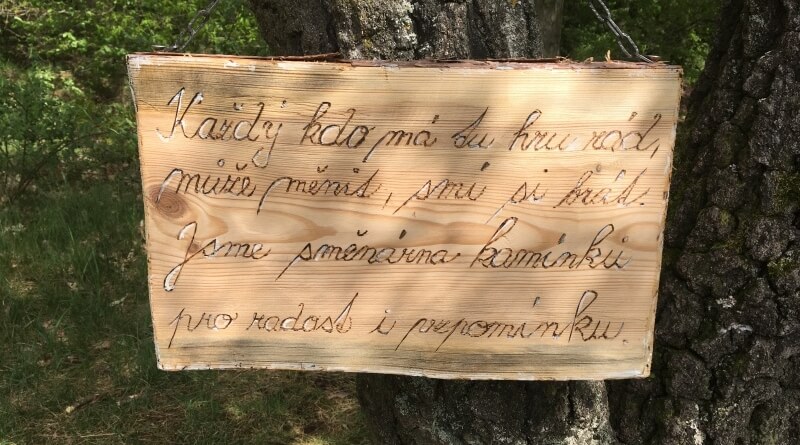 Každý kdo má tu hru rád,
může měnit, smí si brát.
Jsme směnárna kamínků
pro radost i vzpomínku.